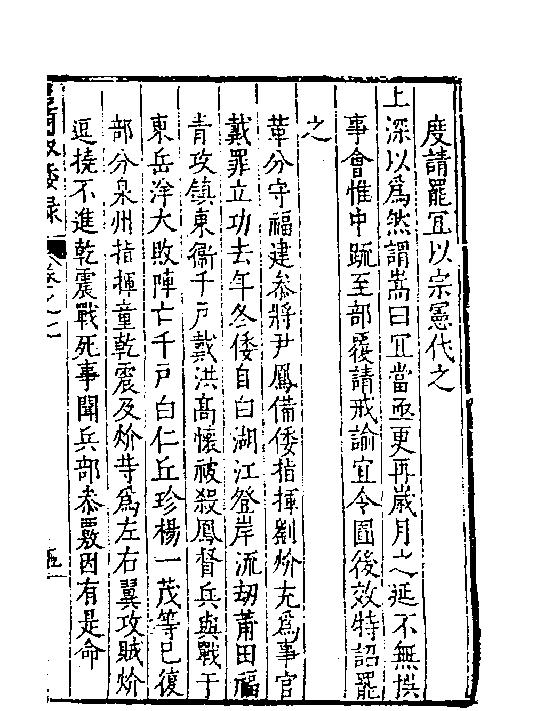 度請罷冝以宗憲代之
上深以爲然謂嵩曰冝當亟更再歲月之延不無悞
事會惟中䟽至部覆請戒諭冝令圖後效特詔罷
之
革分守福建叅將尹鳳備倭指揮劉炌充爲事官
戴罪立功去年冬倭自白湖江登岸流刼莆田福
青攻鎮東衞千戸戴洪高懷被殺鳳督兵與戰于
東岳洋大敗陣亡千戸白仁丘珍楊一茂等已復
部分泉州指揮童乾震及炌䓁爲左右翼攻賊炌
逗撓不進乾震戰死事聞兵部叅覈因有是命
倭録
卷之七
五